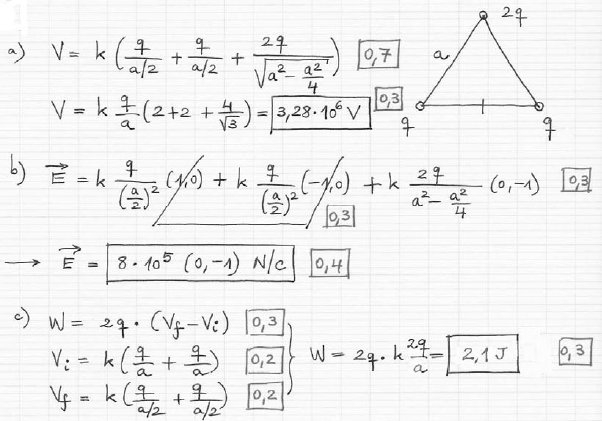 a) V = k (q/(a/2) + q/(a/2) + 2q/√(a² − a²/4)) 0,7
V = k q/a (2+2 + 4/√3) = 3,28·10⁶ V 0,3
2q
a
q q
b) E⃗ = k q/(a/2)² (1,0) + k q/(a/2)² (−1,0) + k 2q/(a² − a²/4) (0,−1) 0,3
0,3
→ E⃗ = 8·10⁵ (0,−1) N/c 0,4
c) W = 2q · (Vf − Vi) 0,3
Vi = k (q/a + q/a) 0,2 } W = 2q · k 2q/a = 2,1 J 0,3
Vf = k (q/(a/2) + q/(a/2)) 0,2